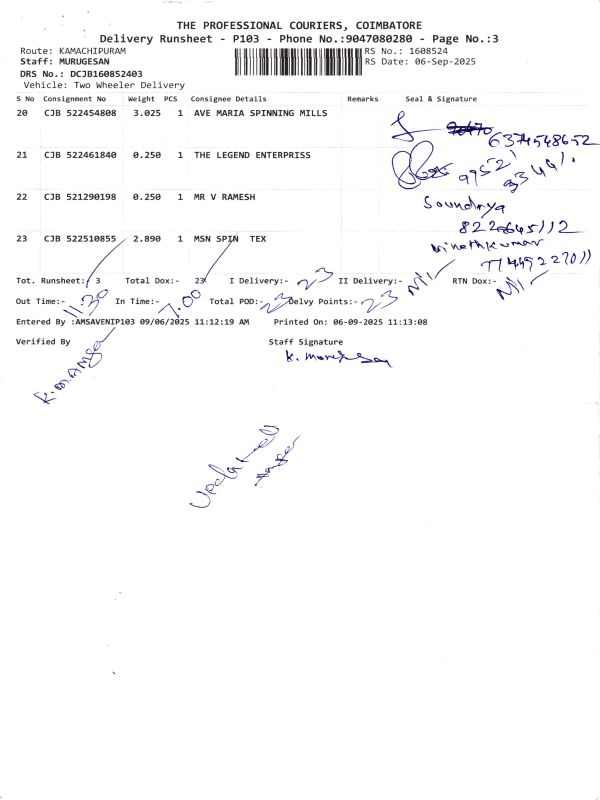 THE PROFESSIONAL COURIERS, COIMBATORE
Delivery Runsheet - P103 - Phone No.:9047080280 - Page No.:3
Route: KAMACHIPURAM RS No.: 1608524
Staff: MURUGESAN RS Date: 06-Sep-2025
DRS No.: DCJB160852403
Vehicle: Two Wheeler Delivery
S No Consignment No Weight PCS Consignee Details Remarks Seal & Signature
20 CJB 522454808 3.025 1 AVE MARIA SPINNING MILLS
6374548652
21 CJB 522461840 0.250 1 THE LEGEND ENTERPRISS
99521
22 CJB 521290198 0.250 1 MR V RAMESH
Soundrya
8220645112
23 CJB 522510855 2.890 1 MSN SPIN TEX
Vinothkumar
Tot. Runsheet: 3 Total Dox:- 23 I Delivery:- 23 II Delivery:- Nil RTN Dox:- Nil
Out Time:- 11.30 In Time:- 7.00 Total POD:- 23 Delvy Points:- 23
Entered By :AMSAVENIP103 09/06/2025 11:12:19 AM Printed On: 06-09-2025 11:13:08
Verified By Staff Signature
Updated